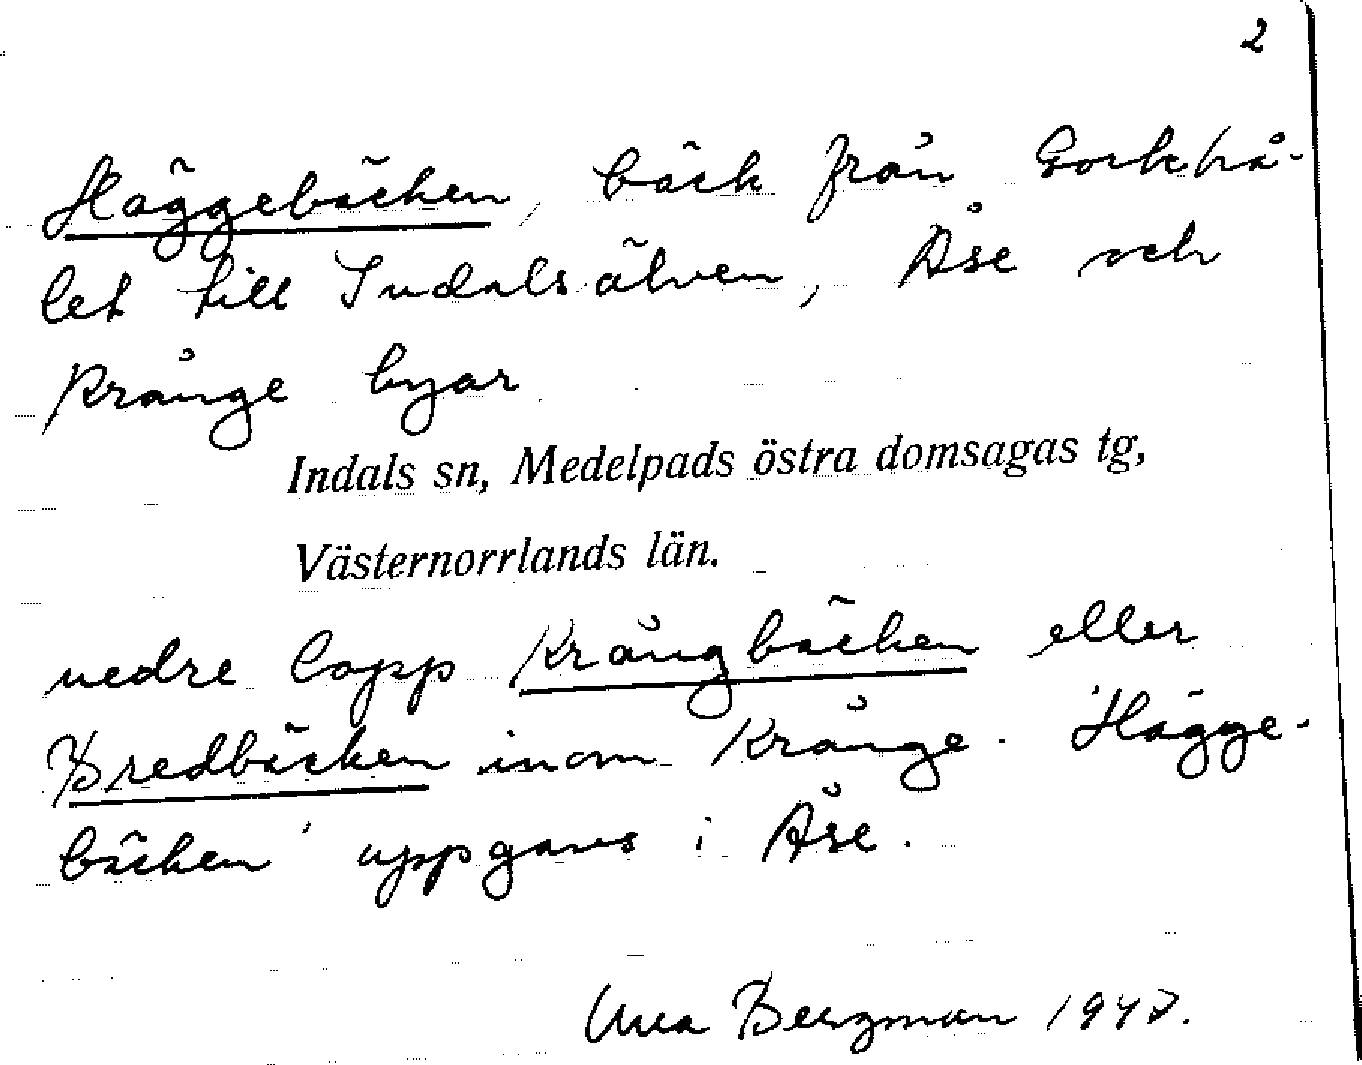 2
Häggebäcken, bäck från Gorkhå-
let till Indalsälven, Åse och
Krånge byar
Indals sn, Medelpads östra domsagas tg,
Västernorrlands län.
nedre lopp Krångbäcken eller
Bredbäcken inom Krånge. 'Hägge-
bäcken' uppgavs i Åse.
Bergman